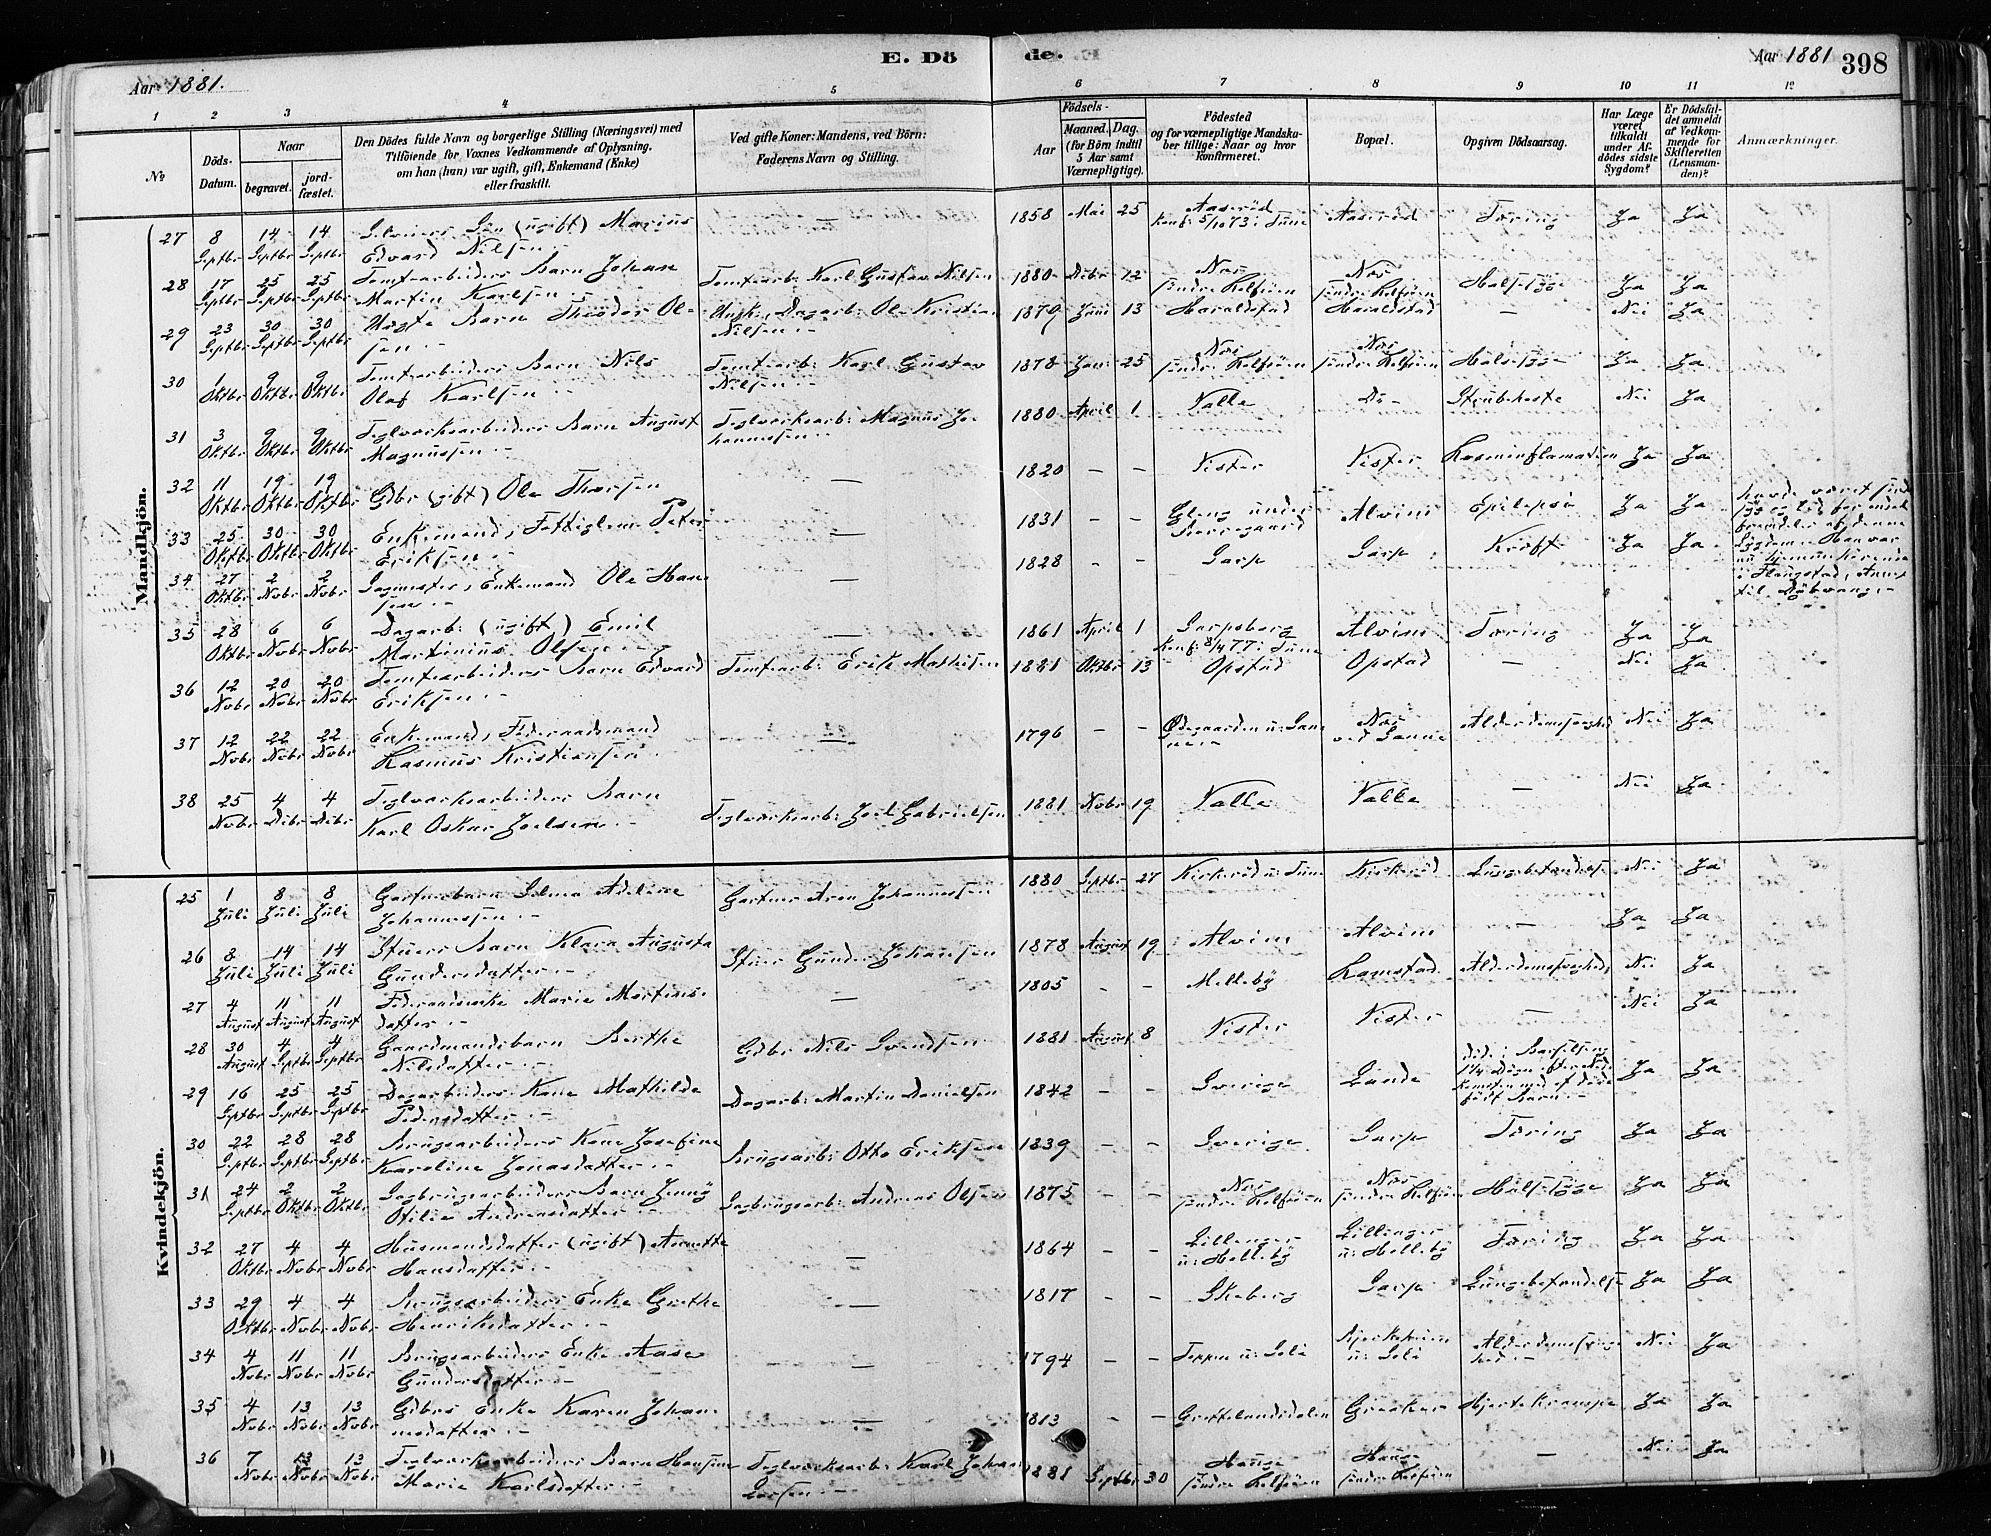 Aar 1881.
E. Dö
de.
Aar 1881
398
1 2 3 4 5 6 7 8 9 10 11 12
No
Döds-Datum.
Naar
begravet.
jord-fæstet.
Den Dödes fulde Navn og borgerlige Stilling (Næringsvei) med
Tilföiende for Voxnes Vedkommende af Oplysning,
om han (hun) var ugift, gift, Enkemand (Enke)
eller fraskilt.
Ved gifte Koner: Mandens, ved Börn:
Faderens Navn og Stilling.
Födsels-
Aar
Maaned. Dag.
(for Börn indtil
5 Aar samt
Værnepligtige).
Födested
og for værnepligtige Mandska-
ber tillige: Naar og hvor
konfirmeret.
Bopæl.
Opgiven Dödsaarsag.
Har Læge
været
tilkaldt
under Af-
dödes sidste
Sygdom?
Er Dödsfal-
det anmeldt
af Vedkom-
mende for
Skifteretten
(Lensman-
den)?
Anmærkninger.
Mandkjön.
27 8 Septbr 14 Septbr 14 Septbr Selveiers Sön (ugift) Marius Edvard Nilsen — 1858 Mai 25 Aaseröd Konf: 5/10 73 i Tune Aaseröd Tæring Ja Ja
28 17 Septbr 25 Septbr 25 Septbr Tomtearbeiders Barn Johan Martin Karlsen Tomtearb: Karl Gustav Nilsen 1880 Debr 12 Nes söndre Rolfsöen Nes söndre Rolfsöen Halssyge Ja Ja
29 23 Septbr 30 Septbr 30 Septbr Uægte Barn Theodor Olesen Ungk., Dagarb: Ole Kristian Nilsen 1879 Juni 13 Haraldstad Haraldstad — Nei Ja
30 1 Oktbr 9 Oktbr 9 Oktbr Tomtearbeiders Barn Nils Olaf Karlsen Tomtearb: Karl Gustav Nilsen 1878 Janr 25 Nes söndre Rolfsöen Nes söndre Rolfsöen Halssyge Ja Ja
31 3 Oktbr 9 Oktbr 9 Oktbr Teglværksarbeiders Barn August Magnussen Teglværksarb: Magnus Johannessen 1880 April 1 Valle Do Strubehoste Nei Ja
32 11 Oktbr 19 Oktbr 19 Oktbr Gdbr (gift) Ole Thorsen — 1820 – – Vister Vister Ja Ja
33 25 Oktbr 30 Oktbr 30 Oktbr Enkemand, Fattiglem Peter Eriksen — 1831 – – Gleng under Alvim Epilepsi Ja Ja
34 27 Oktbr 2 Nobr 2 Nobr Sagmester, Enkemand Ole Hansen — 1828 – – Sarp Sarp Kræft Ja Ja
35 28 Oktbr 6 Nobr 6 Nobr Dagarb: (ugift) Emil Martinius Olsen — 1861 April 1 Sarpsborg Konf: 8/4 77 i Tune Alvim Tæring Ja Ja
36 12 Nobr 20 Nobr 20 Nobr Tomtearbeiders Barn Edvard Eriksen Tomtearb: Erik Mathisen 1881 Oktbr 13 Opstad Opstad — Nei Ja
37 12 Nobr 22 Nobr 22 Nobr Enkemand, Föderaadsmand Rasmus Kristiansen — 1796 – – Ödegaarden u: Sanne Nes ved Sanne Alderdomssvaghed Nei Ja
38 25 Nobr 4 Debr 4 Debr Teglværksarbeiders Barn Karl Oskar Joelsen Teglværksarb: Joel Gabrielsen 1881 Nobr 19 Valle Valle — Nei Ja
Kvindekjön.
25 1 Juli 8 Juli 8 Juli Gartnerbarn Selma Adeline Johannessen Gartner Aron Johannessen 1880 Septbr 27 Kirkeröd u: Tune Kirkeröd Lungebetændelse Nei Ja
26 8 Juli 14 Juli 14 Juli Stuers Barn Klara Augusta Gundersdatter Stuer Gunder Johansen 1878 August 19 Alvim Alvim — Ja Ja
27 4 August 11 August 11 August Föderaadsenke Marie Mortensdatter — 1805 – – Melleby Ramstad Alderdomssvaghed Nei Ja
28 30 August 4 Septbr 4 Septbr Gaardmandsbarn Berthe Nilsdatter Gdbr Nils Svendsen 1881 August 8 Vister Vister — Nei Ja
29 16 Septbr 25 Septbr 25 Septbr Dagarbeiders Kone Mathilde Pedersdatter Dagarb: Martin Danielsen 1842 – – Sverige Lande Döde i Barselseng 1 1/4 Dögn efter Nedkomsten med et dödfödt Barn Ja Ja
30 22 Septbr 28 Septbr 28 Septbr Brugsarbeiders Kone Josefine Karoline Jonasdatter Brugsarb: Otto Eriksen 1839 – – Sverige Sarp Tæring Ja Ja
31 24 Septbr 2 Oktbr 2 Oktbr Sagbrugsarbeiders Barn Jenny Otilie Andreasdatter Sagbrugsarb: Andreas Olsen 1875 – – Nes söndre Rolfsöen Nes söndre Rolfsöen Halssyge Ja Ja
32 27 Oktbr 4 Nobr 4 Nobr Husmandsdatter (ugift) Annette Hansdatter — 1864 – – Lillenger u: Melleby Lillenger u: Melleby Tæring Ja Ja
33 29 Oktbr 4 Nobr 4 Nobr Brugsarbeiders Enke Grethe Henriksdatter — 1817 – – Skeberg Sarp Lungebetændelse Ja Ja
34 4 Nobr 11 Nobr 11 Nobr Brugsarbeiders Enke Aase Gundersdatter — 1794 – – Teppen u: Soli u: Soli Alderdomssvaghed Nei Ja
35 4 Nobr 13 Nobr 13 Nobr Gdbrs Enke Karen Johannesdatter — 1813 – – Greaker Hjertekrampe Ja Ja
36 7 Nobr 13 Nobr 13 Nobr Teglværksarbeiders Barn Hansine Marie Karlsdatter Teglværksarb: Karl Johan Larsen 1881 Septbr 30 Hauge söndre Rolfsöen Hauge söndre Rolfsöen — Nei Ja